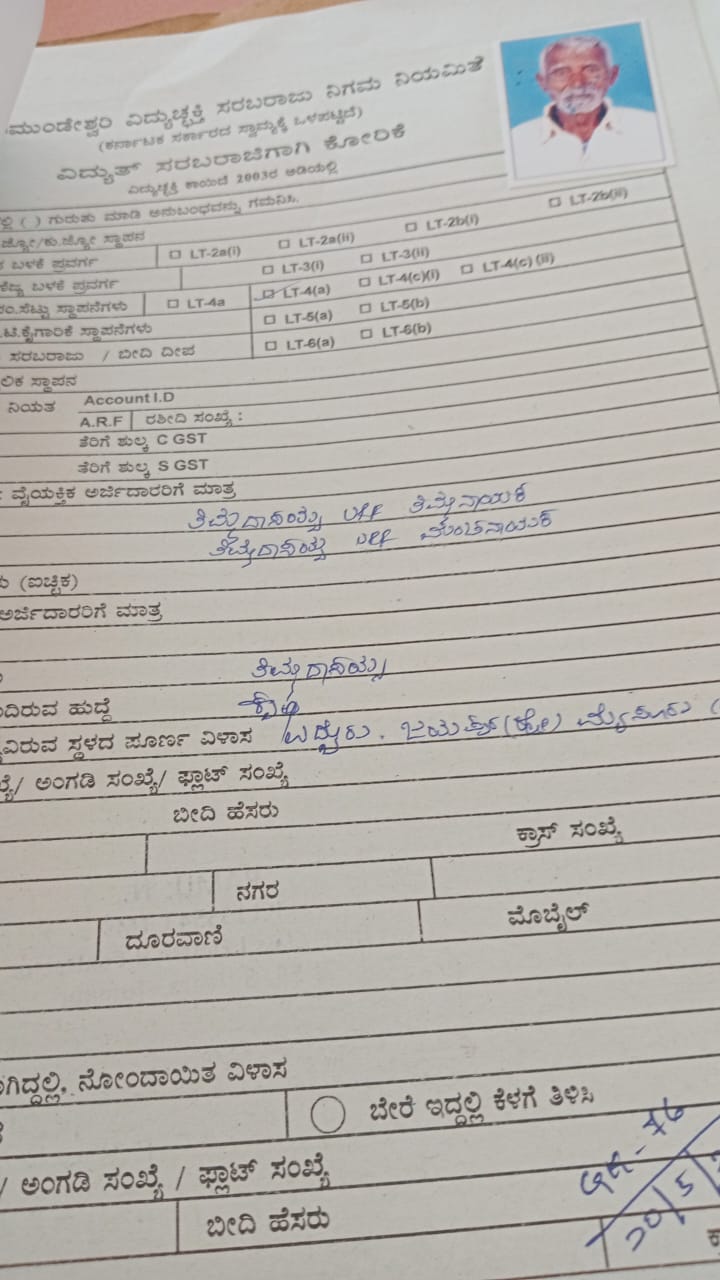 ಮುಂಡೇಶ್ವರಿ ವಿದ್ಯುಚ್ಛಕ್ತಿ ಸರಬರಾಜು ನಿಗಮ ನಿಯಮಿತ
(ಕರ್ನಾಟಕ ಸರ್ಕಾರದ ಸ್ವಾಮ್ಯಕ್ಕೆ ಒಳಪಟ್ಟಿದೆ)
ವಿದ್ಯುತ್ ಸರಬರಾಜಿಗಾಗಿ ಕೋರಿಕೆ
ವಿದ್ಯುಚ್ಛಕ್ತಿ ಕಾಯಿದೆ 2003ರ ಅಡಿಯಲ್ಲಿ
ಲ್ಲಿ ( ) ಗುರುತು ಮಾಡಿ ಅನುಬಂಧವನ್ನು ಗಮನಿಸಿ.
ಜ್ಯೋ/ಕು.ಜ್ಯೋ ಸ್ಥಾಪನ
ಬಳಕೆ ಪ್ರವರ್ಗ LT-2a(i) LT-2a(ii) LT-2b(i) LT-2b(ii)
ಬಳಕೆ ಪ್ರವರ್ಗ LT-3(i) LT-3(ii)
ಸೆಟ್ಟು ಸ್ಥಾಪನೆಗಳು LT-4a LT-4(a) LT-4(c)(i) LT-4(c)(ii)
.ಟಿ.ಕೈಗಾರಿಕೆ ಸ್ಥಾಪನೆಗಳು LT-5(a) LT-5(b)
ಸರಬರಾಜು / ಬೀದಿ ದೀಪ LT-6(a) LT-6(b)
ಲಿಕ ಸ್ಥಾಪನ
ನಿಯತ Account I.D
A.R.F ರಶೀದಿ ಸಂಖ್ಯೆ :
ತೆರಿಗೆ ಶುಲ್ಕ C GST
ತೆರಿಗೆ ಶುಲ್ಕ S GST
ವೈಯಕ್ತಿಕ ಅರ್ಜಿದಾರರಿಗೆ ಮಾತ್ರ
ತಿಮ್ಮದಾಸಯ್ಯ Uff ತಿಮ್ಮನಾಯಕ
ತಿಮ್ಮದಾಸಯ್ಯ Uff ಮಂಚನಾಯಕ
(ಐಚ್ಛಿಕ)
ಅರ್ಜಿದಾರರಿಗೆ ಮಾತ್ರ
ತಿಮ್ಮದಾಸಯ್ಯ
ದಿರುವ ಹುದ್ದೆ
ವಿರುವ ಸ್ಥಳದ ಪೂರ್ಣ ವಿಳಾಸ ಜಯಪುರ (ಹೋ) ಮೈಸೂರು
ಖ್ಯೆ/ ಅಂಗಡಿ ಸಂಖ್ಯೆ/ ಫ್ಲಾಟ್ ಸಂಖ್ಯೆ
ಬೀದಿ ಹೆಸರು
ಕ್ರಾಸ್ ಸಂಖ್ಯೆ
ನಗರ
ದೂರವಾಣಿ ಮೊಬೈಲ್
ಗಿದ್ದಲ್ಲಿ, ನೋಂದಾಯಿತ ವಿಳಾಸ
ಬೇರೆ ಇದ್ದಲ್ಲಿ ಕೆಳಗೆ ತಿಳಿಸಿ
/ ಅಂಗಡಿ ಸಂಖ್ಯೆ / ಫ್ಲಾಟ್ ಸಂಖ್ಯೆ
ಬೀದಿ ಹೆಸರು